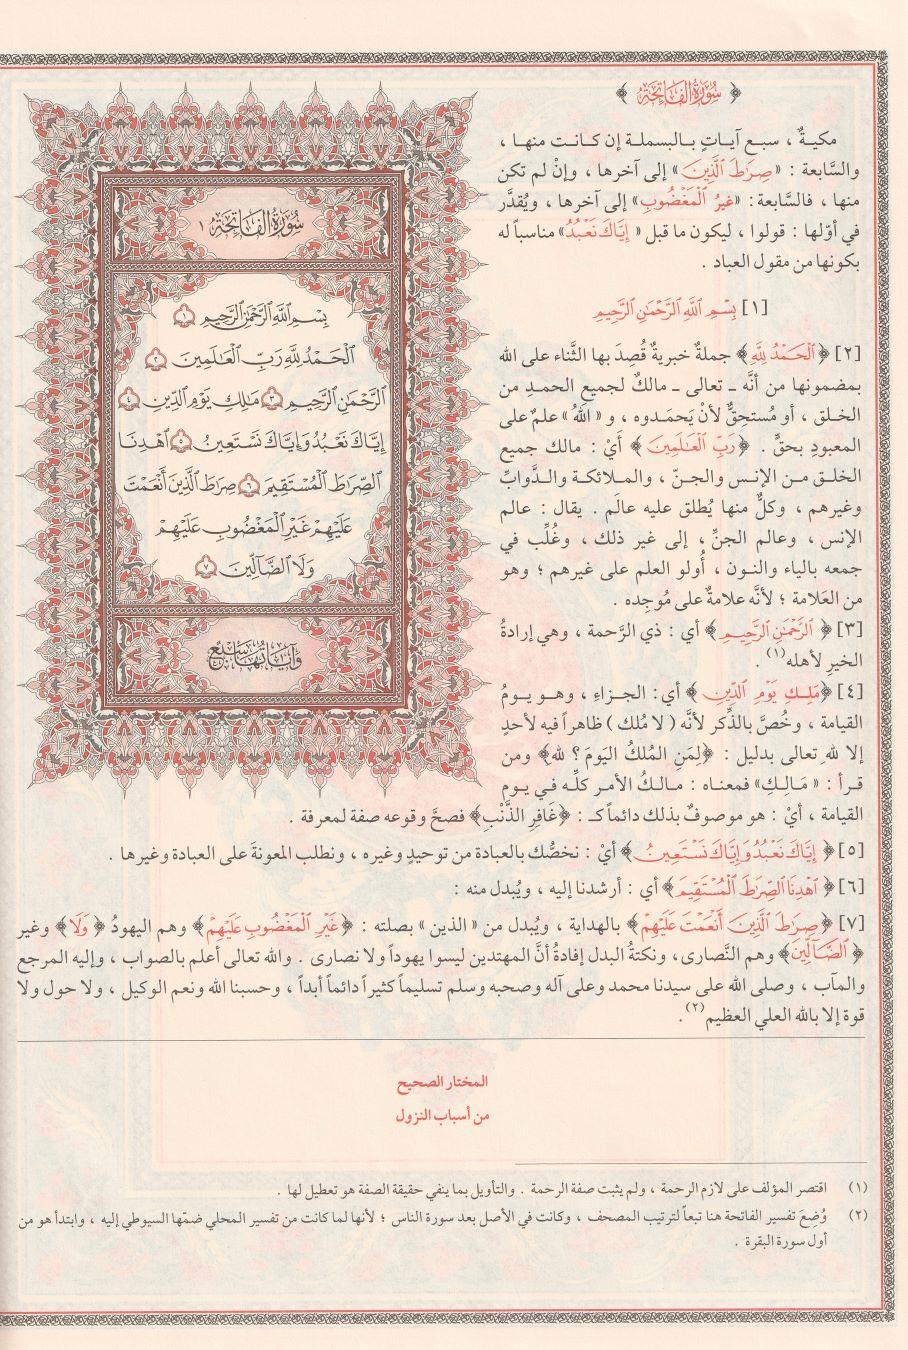 ﴿ سُورَةُ الفَاتِحَة ﴾
مكيةٌ ، سبع آياتٍ بالبسملة إن كانت منها ،
والسَّابعة : «صِرَٰطَ ٱلَّذِينَ» إلى آخرها ، وإنْ لم تكن
منها ، فالسَّابعة: «غيرُ ٱلْمَغْضُوبِ» إلى آخرها ، ويُقدَّر
في أوّلها : قولوا ، ليكون ما قبل « إِيَّاكَ نَعْبُدُ» مناسباً له
بكونها من مقول العباد .
[١] بِسْمِ ٱللَّهِ ٱلرَّحْمَٰنِ ٱلرَّحِيمِ
[٢] ﴿ ٱلْحَمْدُ لِلَّهِ ﴾ جملةٌ خبريةٌ قُصِدَ بها الثَّناء على الله
بمضمونها من أنَّه ـ تعالى ـ مالكٌ لجميع الحمدِ من
الخلق ، أو مُستحِقٌّ لأنْ يَحمَدوه ، و « اللهُ » علمٌ على
المعبودِ بحقٍّ . ﴿ رَبِّ ٱلْعَٰلَمِينَ ﴾ أيْ : مالك جميع
الخلق من الإنس والجنّ ، والملائكة والدَّوابِّ
وغيرهم ، وكلٌّ منها يُطلق عليه عالَم . يقال : عالم
الإنس ، وعالم الجنِّ ، إلى غير ذلك ، وغُلِّب في
جمعه بالياء والنون ، أُولو العلم على غيرهم ؛ وهو
من العَلامة ؛ لأنَّه علامةٌ على مُوجِده .
[٣] ﴿ ٱلرَّحْمَٰنِ ٱلرَّحِيمِ ﴾ أي : ذي الرَّحمة ، وهي إرادةُ
الخيرِ لأهله(١) .
[٤] ﴿مَلِكِ يَوْمِ ٱلدِّينِ ﴾ أي : الجزاءِ ، وهو يومُ
القيامة ، وخُصَّ بالذِّكر لأنَّه ( لا مُلك ) ظاهراً فيه لأحدٍ
إلا للهِ تعالى بدليل : ﴿لِمَنِ المُلكُ اليَومَ؟ لله﴾ ومن
قرأ : « مَالِكِ» فمعناه : مالكُ الأمر كلِّه في يوم
القيامة ، أيْ : هو موصوفٌ بذلك دائماً كـ : ﴿غَافِرِ الذَّنْبِ﴾ فصحَّ وقوعه صفة لمعرفة .
[٥] ﴿ إِيَّاكَ نَعْبُدُ وَإِيَّاكَ نَسْتَعِينُ ﴾ أيْ : نخصُّك بالعبادة من توحيدٍ وغيره ، ونطلب المعونةَ على العبادة وغيرها .
[٦] ﴿ ٱهْدِنَا ٱلصِّرَٰطَ ٱلْمُسْتَقِيمَ ﴾ أي : أرشدنا إليه ، ويُبدل منه :
[٧] ﴿صِرَٰطَ ٱلَّذِينَ أَنْعَمْتَ عَلَيْهِمْ ﴾ بالهداية ، ويُبدل من « الذين » بصلته : ﴿غَيْرِ ٱلْمَغْضُوبِ عَلَيْهِمْ ﴾ وهم اليهودُ ﴿ وَلَا ﴾ وغير
﴿ ٱلضَّآلِّينَ﴾ وهم النَّصارى، ونكتةُ البدل إفادةُ أنَّ المهتدين ليسوا يهوداً ولا نصارى . والله تعالى أعلم بالصواب ، وإليه المرجع
والمآب ، وصلى الله على سيدنا محمد وعلى آله وصحبه وسلم تسليماً كثيراً دائماً أبداً ، وحسبنا الله ونعم الوكيل ، ولا حول ولا
قوة إلا بالله العلي العظيم(٢).
سُورَةُ الفَاتِحَة ١
بِسْمِ ٱللَّهِ ٱلرَّحْمَٰنِ ٱلرَّحِيمِ ١
ٱلْحَمْدُ لِلَّهِ رَبِّ ٱلْعَٰلَمِينَ ٢
ٱلرَّحْمَٰنِ ٱلرَّحِيمِ ٣ مَٰلِكِ يَوْمِ ٱلدِّينِ ٤
إِيَّاكَ نَعْبُدُ وَإِيَّاكَ نَسْتَعِينُ ٥ ٱهْدِنَا
ٱلصِّرَٰطَ ٱلْمُسْتَقِيمَ ٦ صِرَٰطَ ٱلَّذِينَ أَنْعَمْتَ
عَلَيْهِمْ غَيْرِ ٱلْمَغْضُوبِ عَلَيْهِمْ
وَلَا ٱلضَّآلِّينَ ٧
وَآيَاتُهَا سَبْعٌ
المختار الصحيح
من أسباب النزول
(١) اقتصر المؤلف على لازم الرحمة ، ولم يثبت صفة الرحمة . والتأويل بما ينفي حقيقة الصفة هو تعطيل لها .
(٢) وُضِعَ تفسير الفاتحة هنا تبعاً لترتيب المصحف ، وكانت في الأصل بعد سورة الناس ؛ لأنها لما كانت من تفسير المحلي ضمّها السيوطي إليه ، وابتدأ هو من
أول سورة البقرة .